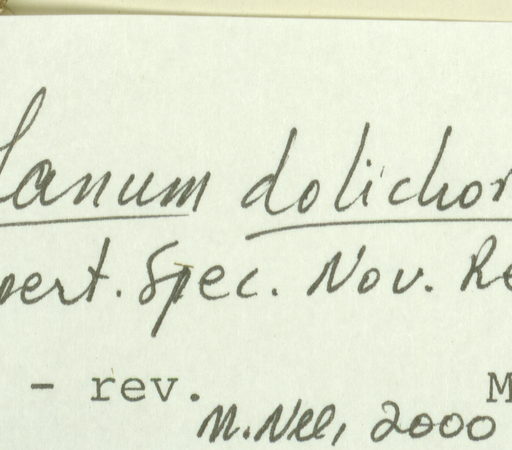 lanum dolichor
pert. Spec. Nov. Re
- rev. M
M. Nee, 2000